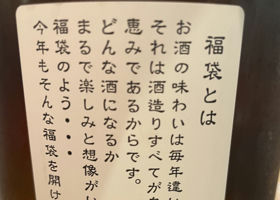 福袋とは
お酒の味わいは毎年違い
それは酒造りすべてが自
恵みであるからです。
どんな酒になるか
まるで楽しみと想像がい
福袋のよう・・・
今年もそんな福袋を開け